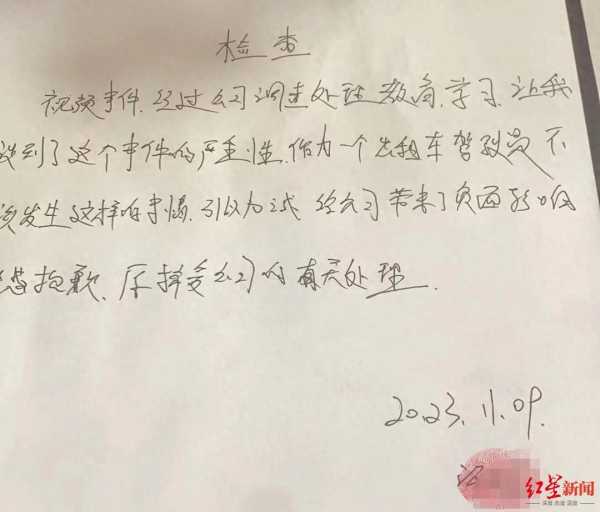 检查
视频事件.经过公司调查处理教育.学习.让我
识到了这个事件的严重性.作为一个出租车驾驶员不
该发生这样的事情.引以为戒.给公司带来了负面影响
感抱歉.愿接受公司的有关处理.
2023.11.09.
红星新闻
深度 态度 温度